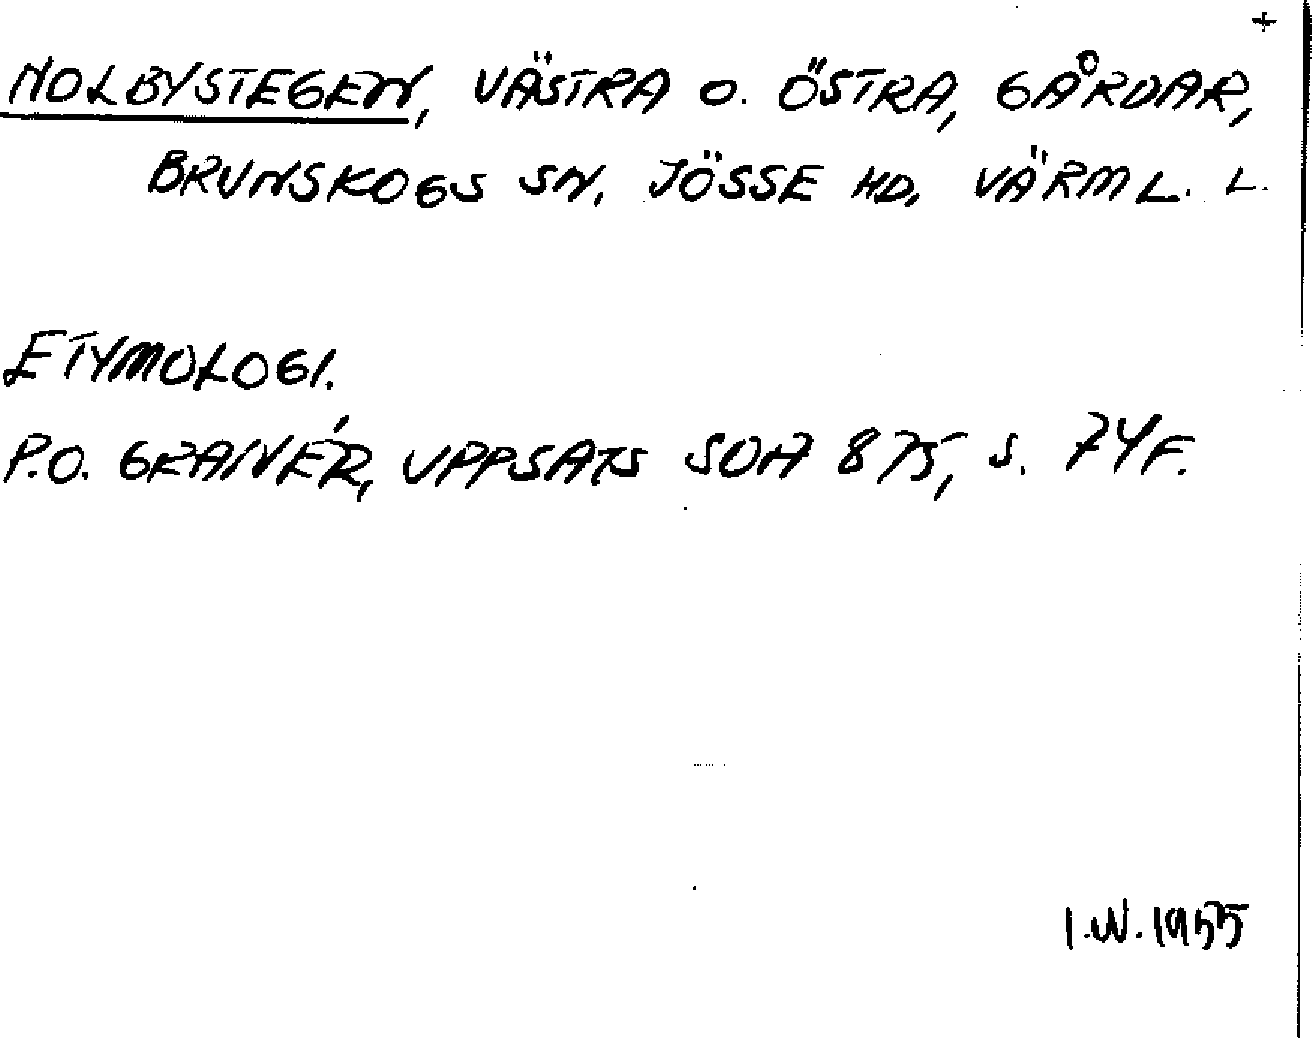 +
NOLBYSTEGEN, VÄSTRA O. ÖSTRA, GÅRDAR,
BRUNSKOGS SN. JÖSSE HD. VÄRML. L.
ETYMOLOGI.
P.O. GRANÉR, UPPSATS SOA 875, S. 74F.
I.W. 1955